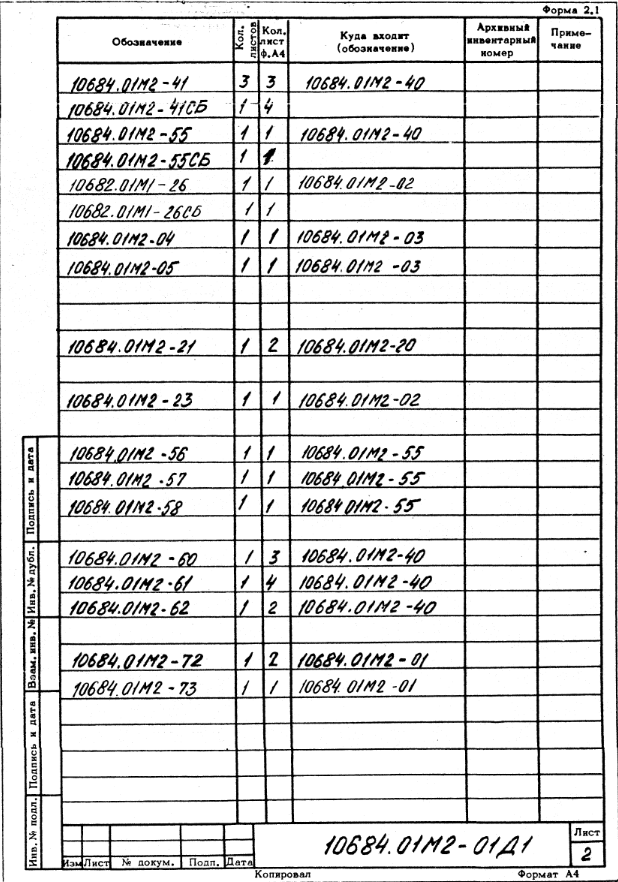 Форма 2.1
Обозначение Кол. листов Кол. лист ф.А4 Куда входит (обозначение) Архивный инвентарный номер Приме-чание
10684.01М2-41 3 3 10684.01М2-40
10684.01М2-41СБ 1 4
10684.01М2-55 1 1 10684.01М2-40
10684.01М2-55СБ 1 1
10682.01М1-26 1 1 10684.01М2-02
10682.01М1-26СБ 1 1
10684.01М2-04 1 1 10684.01М2-03
10684.01М2-05 1 1 10684.01М2-03
10684.01М2-21 1 2 10684.01М2-20
10684.01М2-23 1 1 10684.01М2-02
10684.01М2-56 1 1 10684.01М2-55
10684.01М2-57 1 1 10684.01М2-55
10684.01М2-58 1 1 10684.01М2-55
10684.01М2-60 1 3 10684.01М2-40
10684.01М2-61 1 4 10684.01М2-40
10684.01М2-62 1 2 10684.01М2-40
10684.01М2-72 1 2 10684.01М2-01
10684.01М2-73 1 1 10684.01М2-01
Инв. № подл. Подпись и дата Взам. инв. № Инв. № дубл. Подпись и дата
10684.01М2-01Д1
Лист
2
Изм Лист № докум. Подп. Дата
Копировал Формат А4